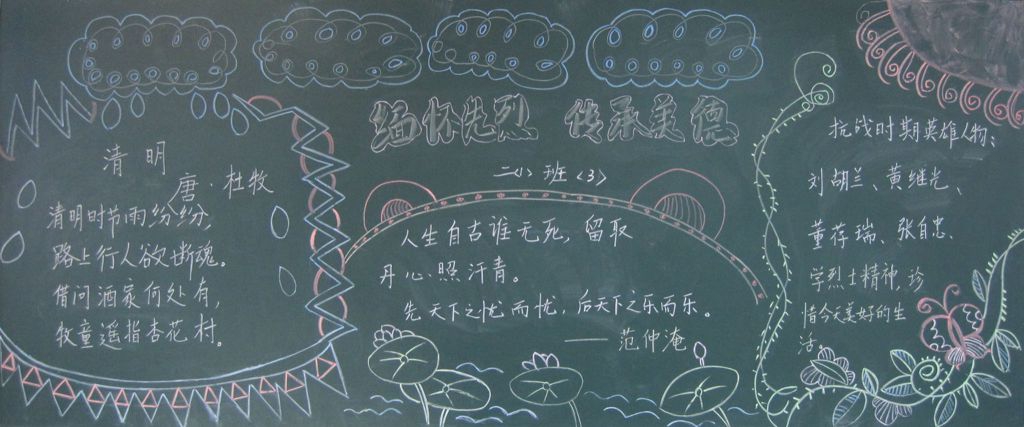 缅怀先烈 传承美德
二〈1〉班〈3〉
清明
唐·杜牧
清明时节雨纷纷,
路上行人欲断魂。
借问酒家何处有,
牧童遥指杏花村。
人生自古谁无死, 留取
丹心照汗青。
先天下之忧而忧, 后天下之乐而乐。
——范仲淹
抗战时期英雄人物:
刘胡兰、黄继光、
董存瑞、张自忠、
学烈士精神, 珍
惜今天美好的生
活。